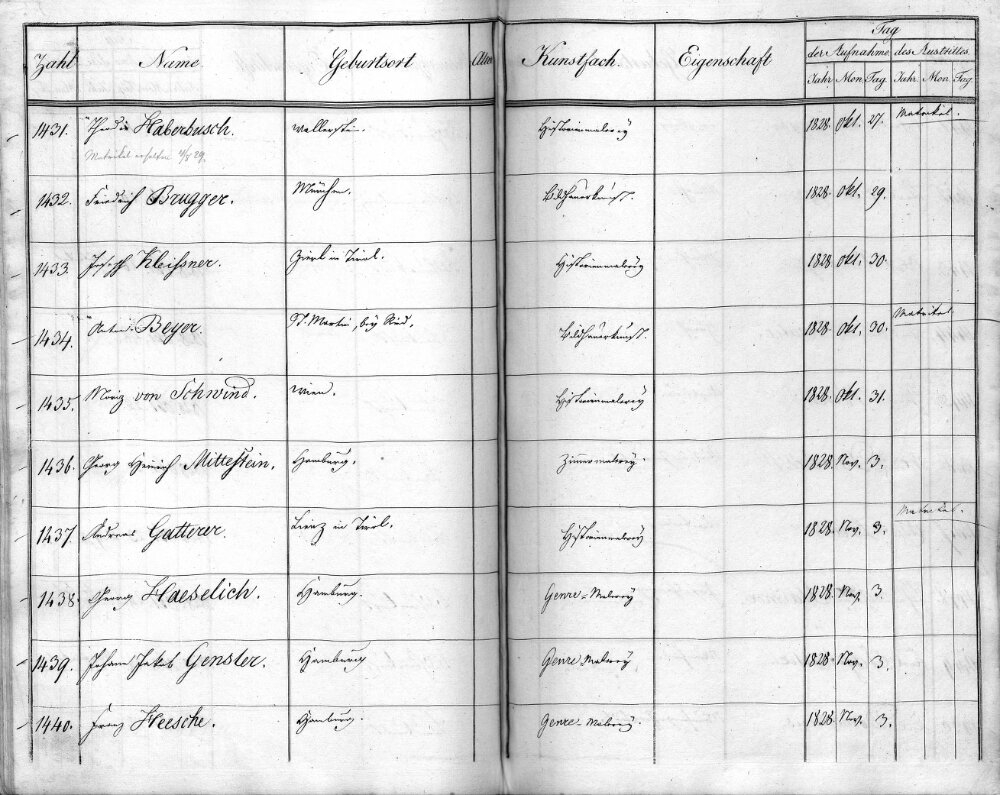 Zahl Name Geburtsort Alter Kunstfach. Eigenschaft Tag
der Aufnahme des Austrittes
Jahr Mon. Tag Jahr. Mon. Tag
1431. Haberbusch. Wallerstein. Historienmalerey 1828 Okt. 27. Matrikel.
Matrikel erhalten
1432. Friedrich Brugger. München. Bildhauerkunst. 1828 Okt. 29.
1433. Joseph Kleißner. Zierl in Tirol. Historienmalerey 1828 Okt. 30.
1434. Anton Beyer. St. Martin, bey Ried. Bildhauerkunst. 1828 Okt. 30. Matrikel
1435. Moriz von Schwind. Wien. Historienmalerey 1828 Okt. 31.
1436. Georg Heinrich Mittestein. Hamburg. Zimmermalerey. 1828. Nov. 3.
1437. Andreas Gatterer. Lienz in Tirol. Historienmalerey 1828 Nov. 3. Matrikel.
1438. Georg Haeselich. Hamburg. Genre-Malerey 1828. Nov. 3.
1439. Johann Jakob Gensler. Hamburg Genre Malerey 1828. Nov. 3.
1440. Franz Heesche. Hamburg. Genre-Malerey. 1828 Nov. 3.